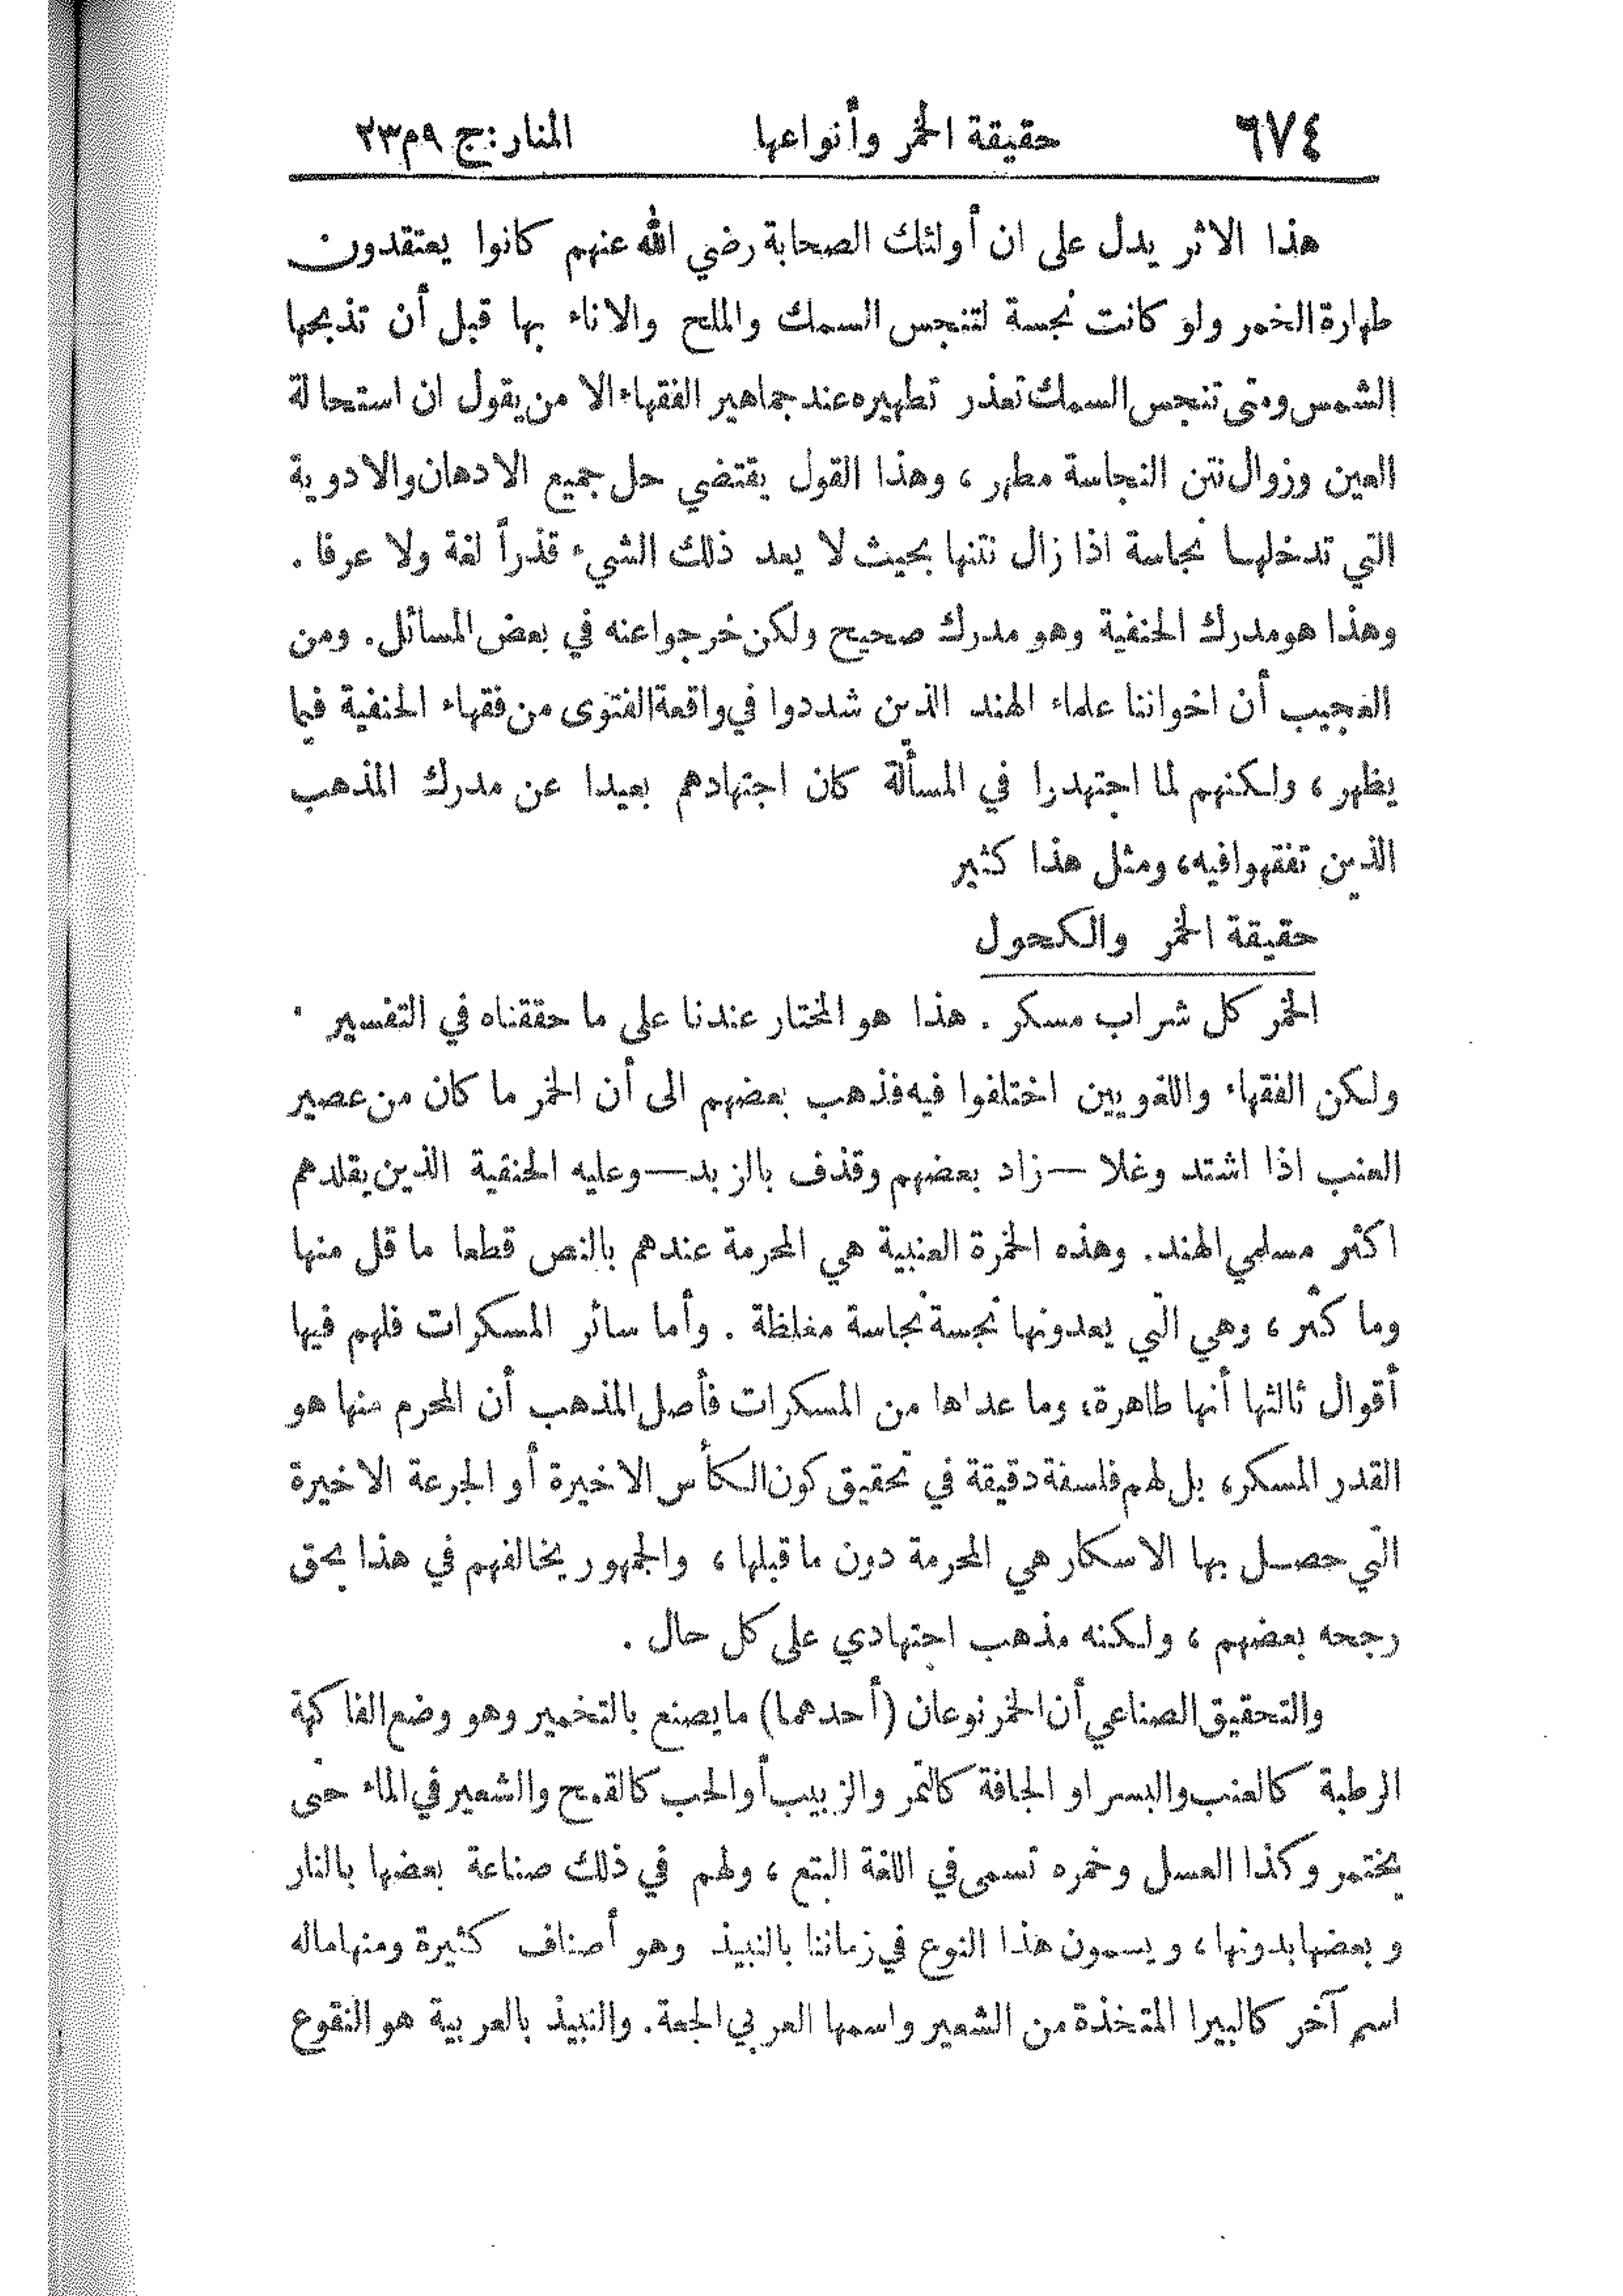 ٦٧٤ حقيقة الخمر وأنواعها المنار: ج ٩ م ٢٣
هذا الاثر يدل على ان أولئك الصحابة رضي الله عنهم كانوا يعتقدون
طهارة الخمر ولو كانت نجسة لتنجس السمك والملح والاناء بها قبل أن تذبحها
الشمس ومتى تنجس السمك تعذر تطهيره عند جماهير الفقهاء الا من يقول ان استحالة
العين وزوال نتن النجاسة مطهر ، وهذا القول يقتضي حل جميع الادهان والادوية
التي تدخلها نجاسة اذا زال نتنها بحيث لا يعد ذلك الشيء قذراً لغة ولا عرفا .
وهذا هو مدرك الحنفية وهو مدرك صحيح ولكن خرجوا عنه في بعض المسائل. ومن
العجيب أن اخواننا علماء الهند الذين شددوا في واقعة الفتوى من فقهاء الحنفية فيما
يظهر ، ولكنهم لما اجتهدوا في المسألة كان اجتهادهم بعيدا عن مدرك المذهب
الذين تفقهوا فيه، ومثل هذا كثير
حقيقة الخمر والكحول
الخمر كل شراب مسكر . هذا هو المختار عندنا على ما حققناه في التفسير .
ولكن الفقهاء واللغويين اختلفوا فيه فذهب بعضهم الى أن الخمر ما كان من عصير
العنب اذا اشتد وغلا — زاد بعضهم وقذف بالزبد — وعليه الحنفية الذين يقلدهم
اكثر مسلمي الهند. وهذه الخمرة العنبية هي المحرمة عندهم بالنص قطعا ما قل منها
وما كثر ، وهي التي يعدونها نجسة نجاسة مغلظة . وأما سائر المسكرات فلهم فيها
أقوال ثالثها أنها طاهرة، وما عداها من المسكرات فأصل المذهب أن المحرم منها هو
القدر المسكر، بل لهم فلسفة دقيقة في تحقيق كون الكأس الاخيرة أو الجرعة الاخيرة
التي حصل بها الاسكار هي المحرمة دون ما قبلها ، والجمهور يخالفهم في هذا بحق
رجحه بعضهم ، ولكنه مذهب اجتهادي على كل حال .
والتحقيق الصناعي أن الخمر نوعان (أحدهما) ما يصنع بالتخمير وهو وضع الفاكهة
الرطبة كالعنب والبسر او الجافة كالتمر والزبيب أو الحب كالقمح والشعير في الماء حتى
يختمر وكذا العسل وخمره تسمى في اللغة البتع ، ولهم في ذلك صناعة بعضها بالنار
وبعضها بدونها ، ويسمون هذا النوع في زماننا بالنبيذ وهو أصناف كثيرة ومنها ماله
اسم آخر كالبيرا المتخذة من الشعير واسمها العربي الجعة. والنبيذ بالعربية هو النقوع